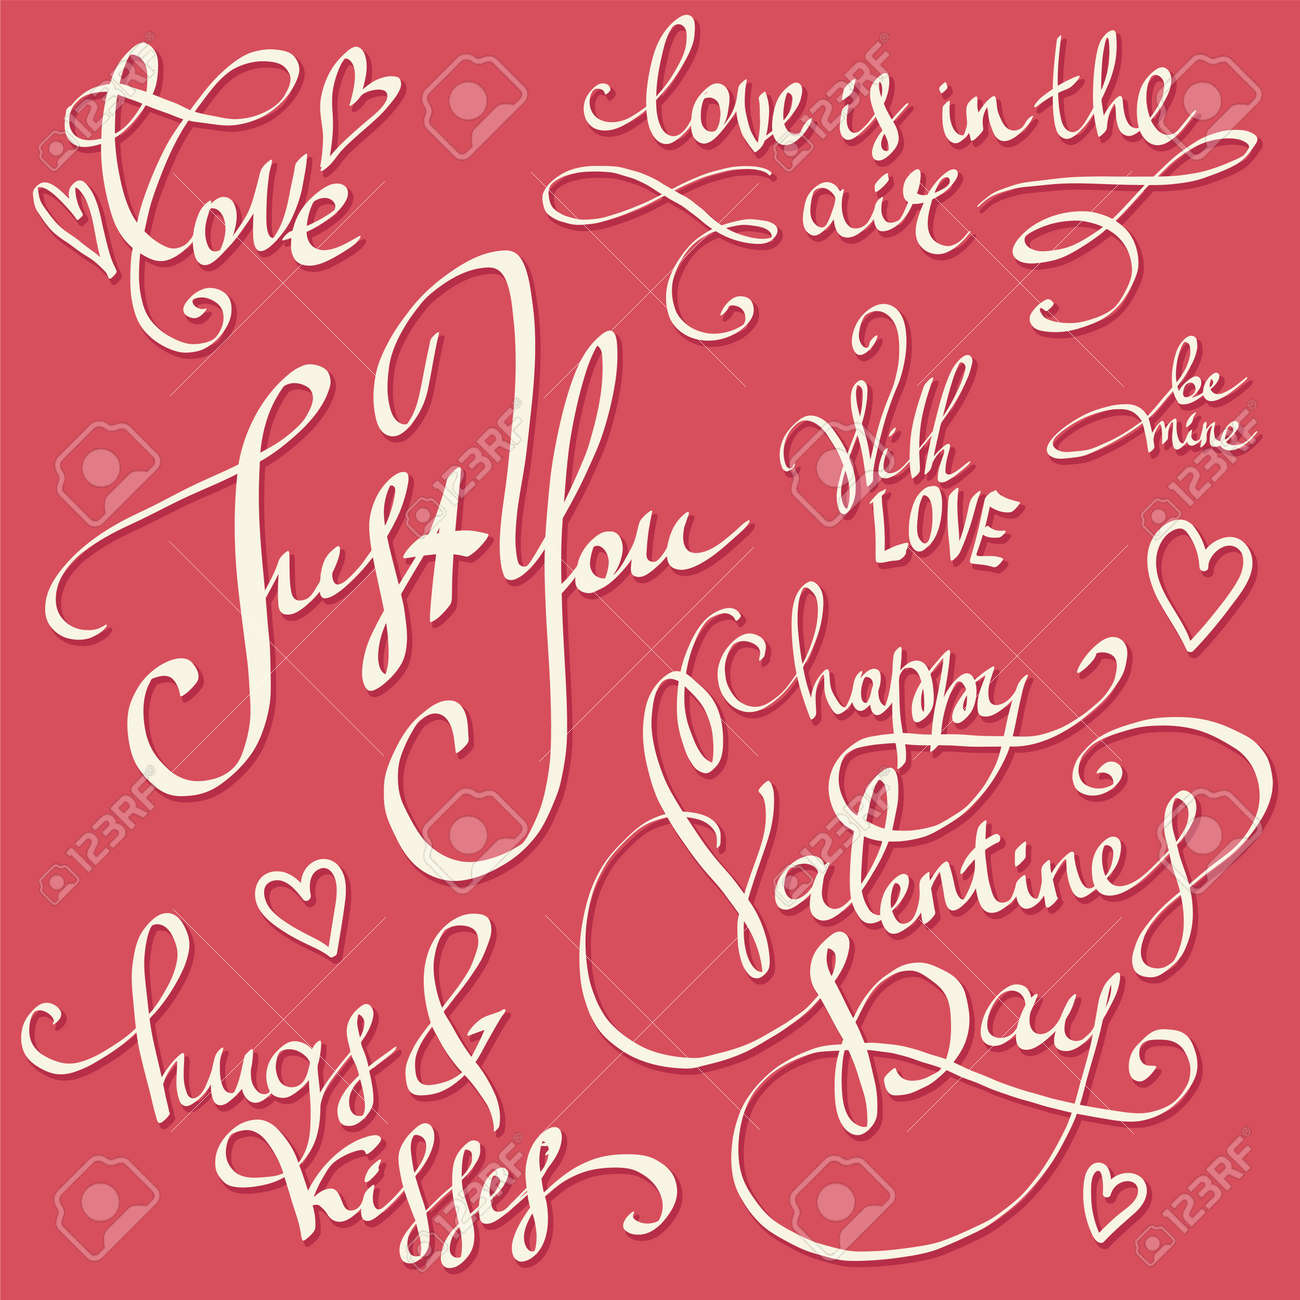 Love
love is in the
air
Just You
With
LOVE
be
mine
happy
Valentines
Day
hugs &
kisses
123RF